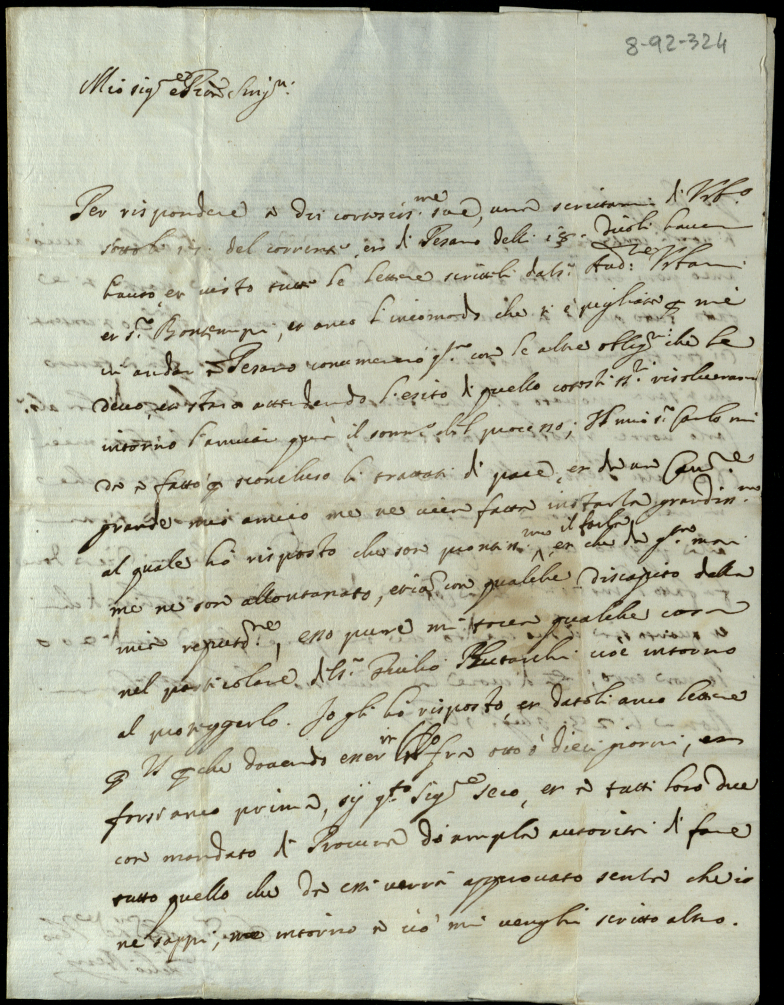 8-92-324
Mio sig.re e Pron Sing.re
Per rispondere a dui cortesiss.me sue, una scrittami di Urb.o
sotto li del corrente, et di Pesaro delli 18. dicoli haver
hauto, et visto tutte le lettere scritteli dal s.r Aud.re Urbani
et s.r Bontempi, et anco l'incomodo che si è pigliato me
in andar a Pesaro con le altre oblig.ni che le
devo, et starò attendendo l'esito di quello cotesti ss.ri risolveranno
intorno l'inviar quà il somm.o del processo; Il mio s.r Carlo mi
dà sconcluso li trattati di pace, et da un Cav.re
grande mio amico me ne vien fatta instanza grandiss.ma
al quale hò risposto che son prontiss.mo il farla, et che da q.ta mai
me ne son allontanato, con qualche discapito della
mia reput.ne, esso pure mi tocca qualche cosa
nel particolare del s.r Giulio Plutarchi cioè intorno
al proteggerlo. Io gli hò risposto et datoli anco lettere
che dovendo esser frà otto ò dieci giorni, et
forsi anco prima, sij q.to Sig.re seco, et à tutti loro due
con mandato di Procura di ampla autorità di fare
tutto quello che da essi verrà approvato senza che io
ne sappi, intorno à ciò mi venghi scritto altro.